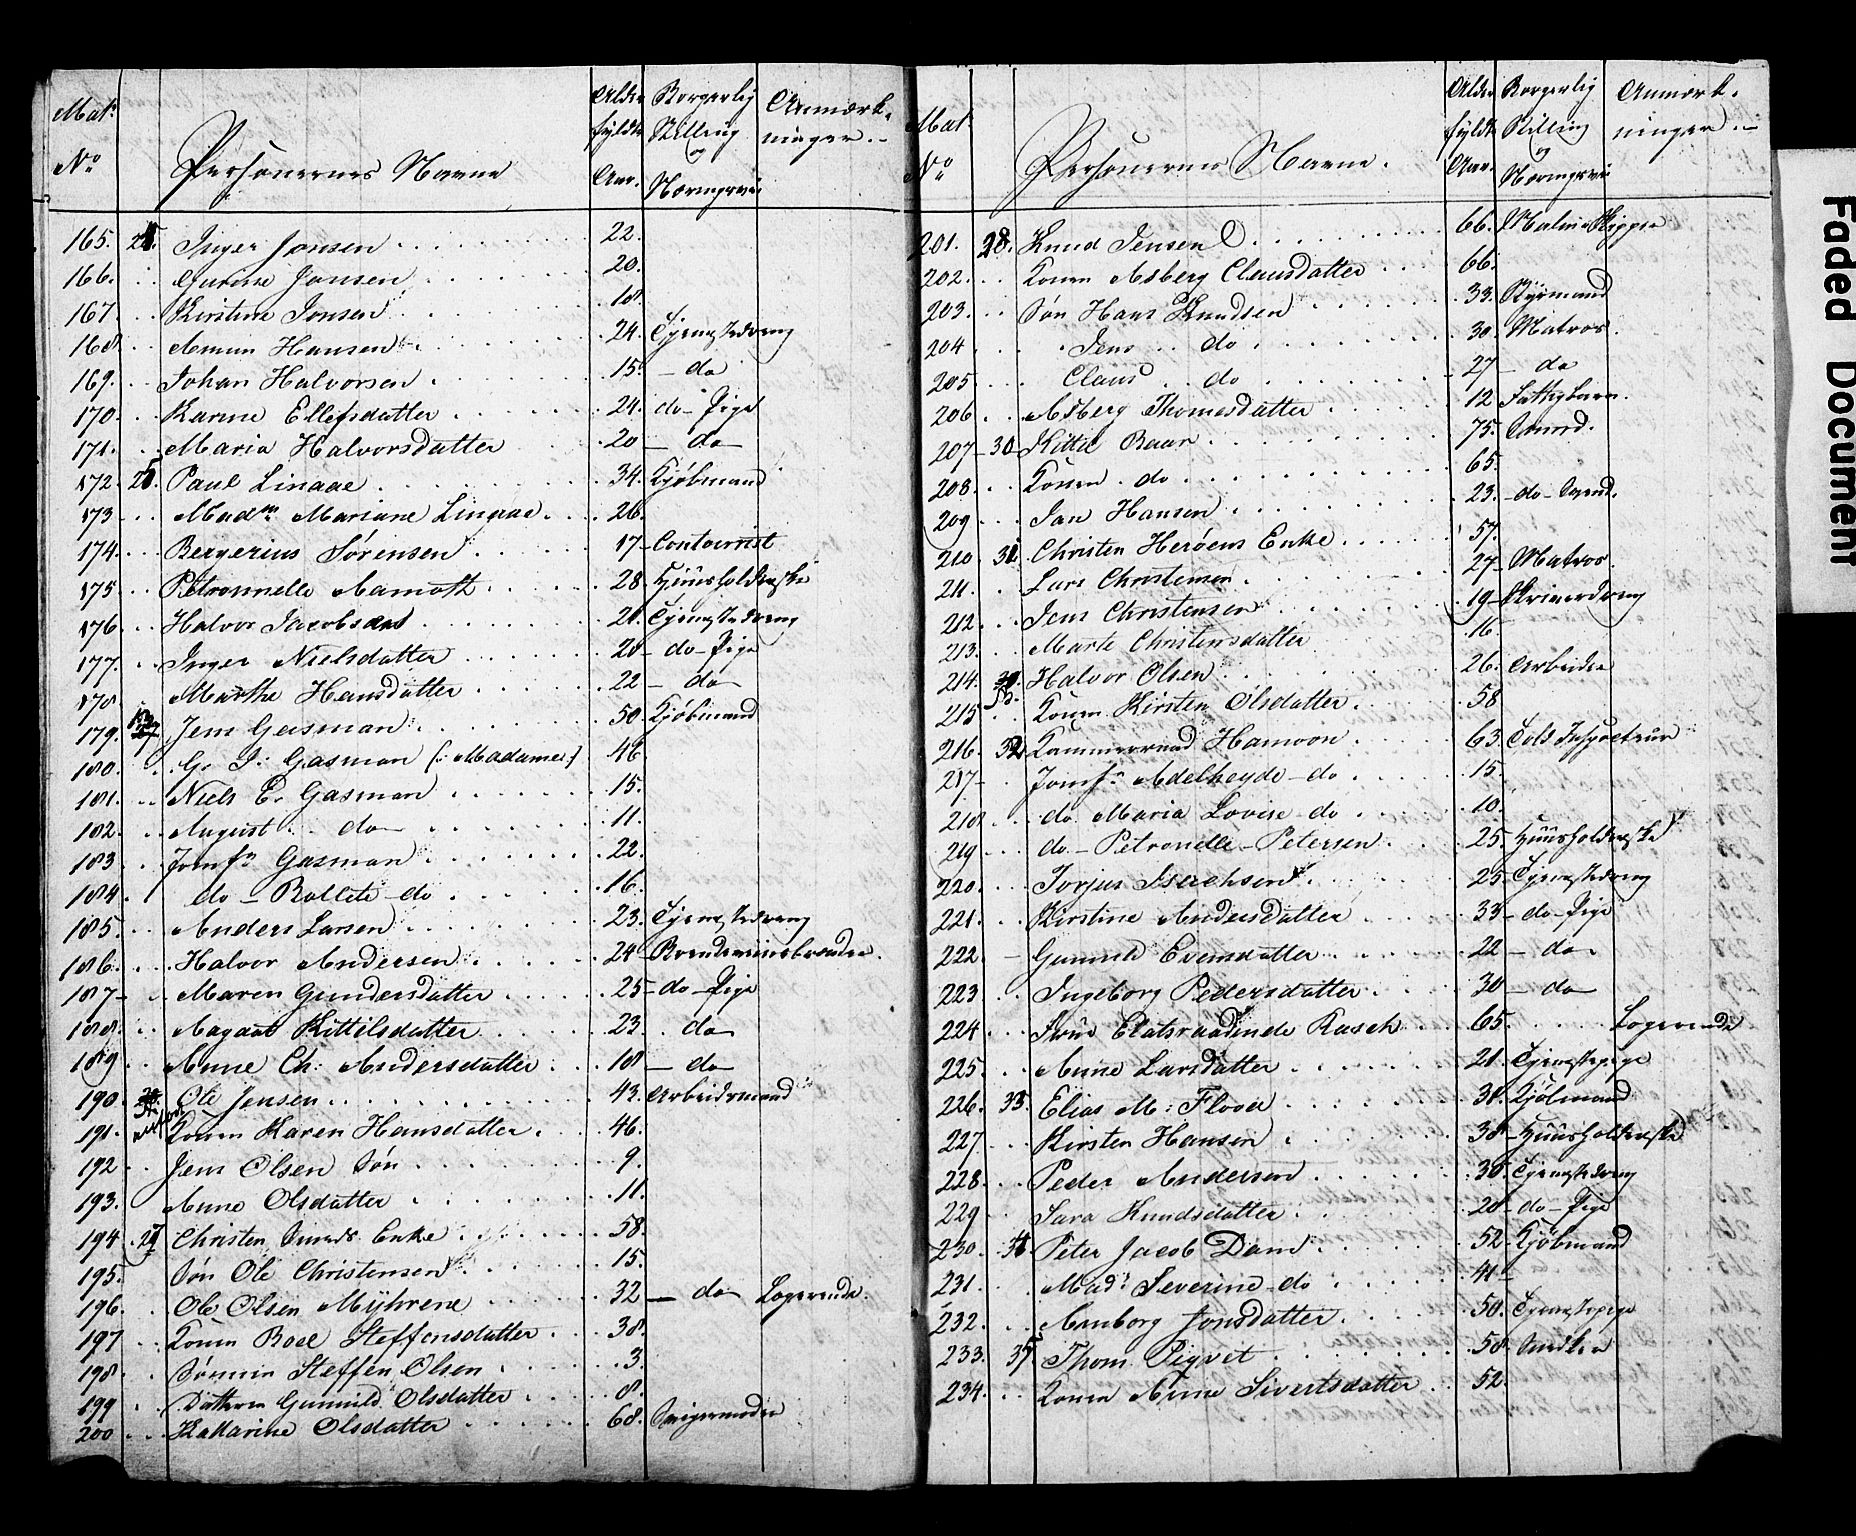 Mat:
No
Personernes Navne
Alder fyldte Aar.
Borgerlig Stilling og Næringsvei
Anmærkninger.
165. Inger Jansen 22.
166. Gurine Jansen 20.
167. Kirstine Jonsen 18
168. Amun Hansen 24. Tjenestedreng
169. Johan Halvorsen 15. do
170. Karine Ellefsdatter 24. do Pige
171. Maria Halvorsdatter 20 do
172. Paul Linaae 34. Kjøbmand
173 Madm Mariane Linaae 26.
174. Bergerius Sørensen 17 Contoirist
175 Petronnelle Aamoth 28. Huusholderske
176. Halvor Jacobsen 21. Tjenestedreng
177. Inger Nielsdatter 20 do Pige
178 Marthe Hansdatter 22 do
179. Jens Gasman 50. Kjøbmand
180. G. J. Gasman (: Madame :) 46
181. Niels E. Gasman 15.
182. August do 11.
183 Jomfr Gasman 22.
184. do Bollete do 16.
185. Anders Larsen 23. Tjenestedreng
186. Halvor Andersen 24
187 Maren Gundersdatter 25 do Pige
188. Aagaat Kittilsdatter 23. do
189 Anne Ch: Andersdatter 18 do
190. Ole Jensen 43. Arbeidsmand
191. Konen Karen Hansdatter. 46.
192 Jens Olsen Søn 9.
193. Anne Olsdatter 11.
194. 27 Christen Smeds Enke 58.
195. Søn Ole Christensen 15.
196. Ole Olsen Myhrene 32 do Logerende.
197 Konen Boel Steffensdatter 38.
198. Sønnen Steffen Olsen 3.
199 Datteren Gunnild Olsdatter 8.
200 Katharine Olsdatter 68. Svigermoder
Mat:
No
Personernes Navne.
Alder fyldte Aar.
Borgerlig Stilling og Næringsvei
Anmærkninger.
201. 28. Knud Jensen 66.
202. Konen Asberg Clausdatter 66.
203. Søn Hans Knudsen 33. Styrmand
204 Jens do 30. Matros.
205 Claus do 27 do
206. Asberg Thomesdatter 12 Fattigbarn.
207 30 Kittil Baar 75. Smed.
208. Konen do 65.
209 Jan Hansen 23. do Svend.
210 31 Christen Herøens Enke 57.
211. Lars Christensen 27 Matros.
212. Jens Christensen 19
213. Marte Christensdatter 16.
214. Halvor Olsen 26. Arbeider
215 Konen Kirsten Olsdatter 58
216. 32 Kammerraad Hamoon 63. Told Inspecteur
217 Jomfr Adelheyde do 15.
218 do Maria Lovise do 10.
219 do Petronelle Petersen 25. Huusholderske
220. Torjus Isachsen 25. Tjenestedreng
221. Kirstine Andersdatter 33 do Pige
222. Gunnild Evensdatter 22 do
223 Ingeborg Pedersdatter 30 do
224 Frue Etatsraadinde Rasch 65. Logerende
225. Anne Larsdatter 21. Tjenestepige
226. 33. Elias M: Flood 31. Kjøbmand
227. Kirsten Hansen 38 Huusholderske
228. Peder Andersen 36. Tjenestedreng
229 Sara Knudsdatter 20 do Pige
230. Peter Jacob Dam 52. Kjøbmand
231 Mad: Severine do 41
232. Amborg Jonsdatter 50. Tjenestepige
233. 35 Thom. Pigvet 58. Snedker
234. Konen Anne Sivertsdatter 52.
Faded Document